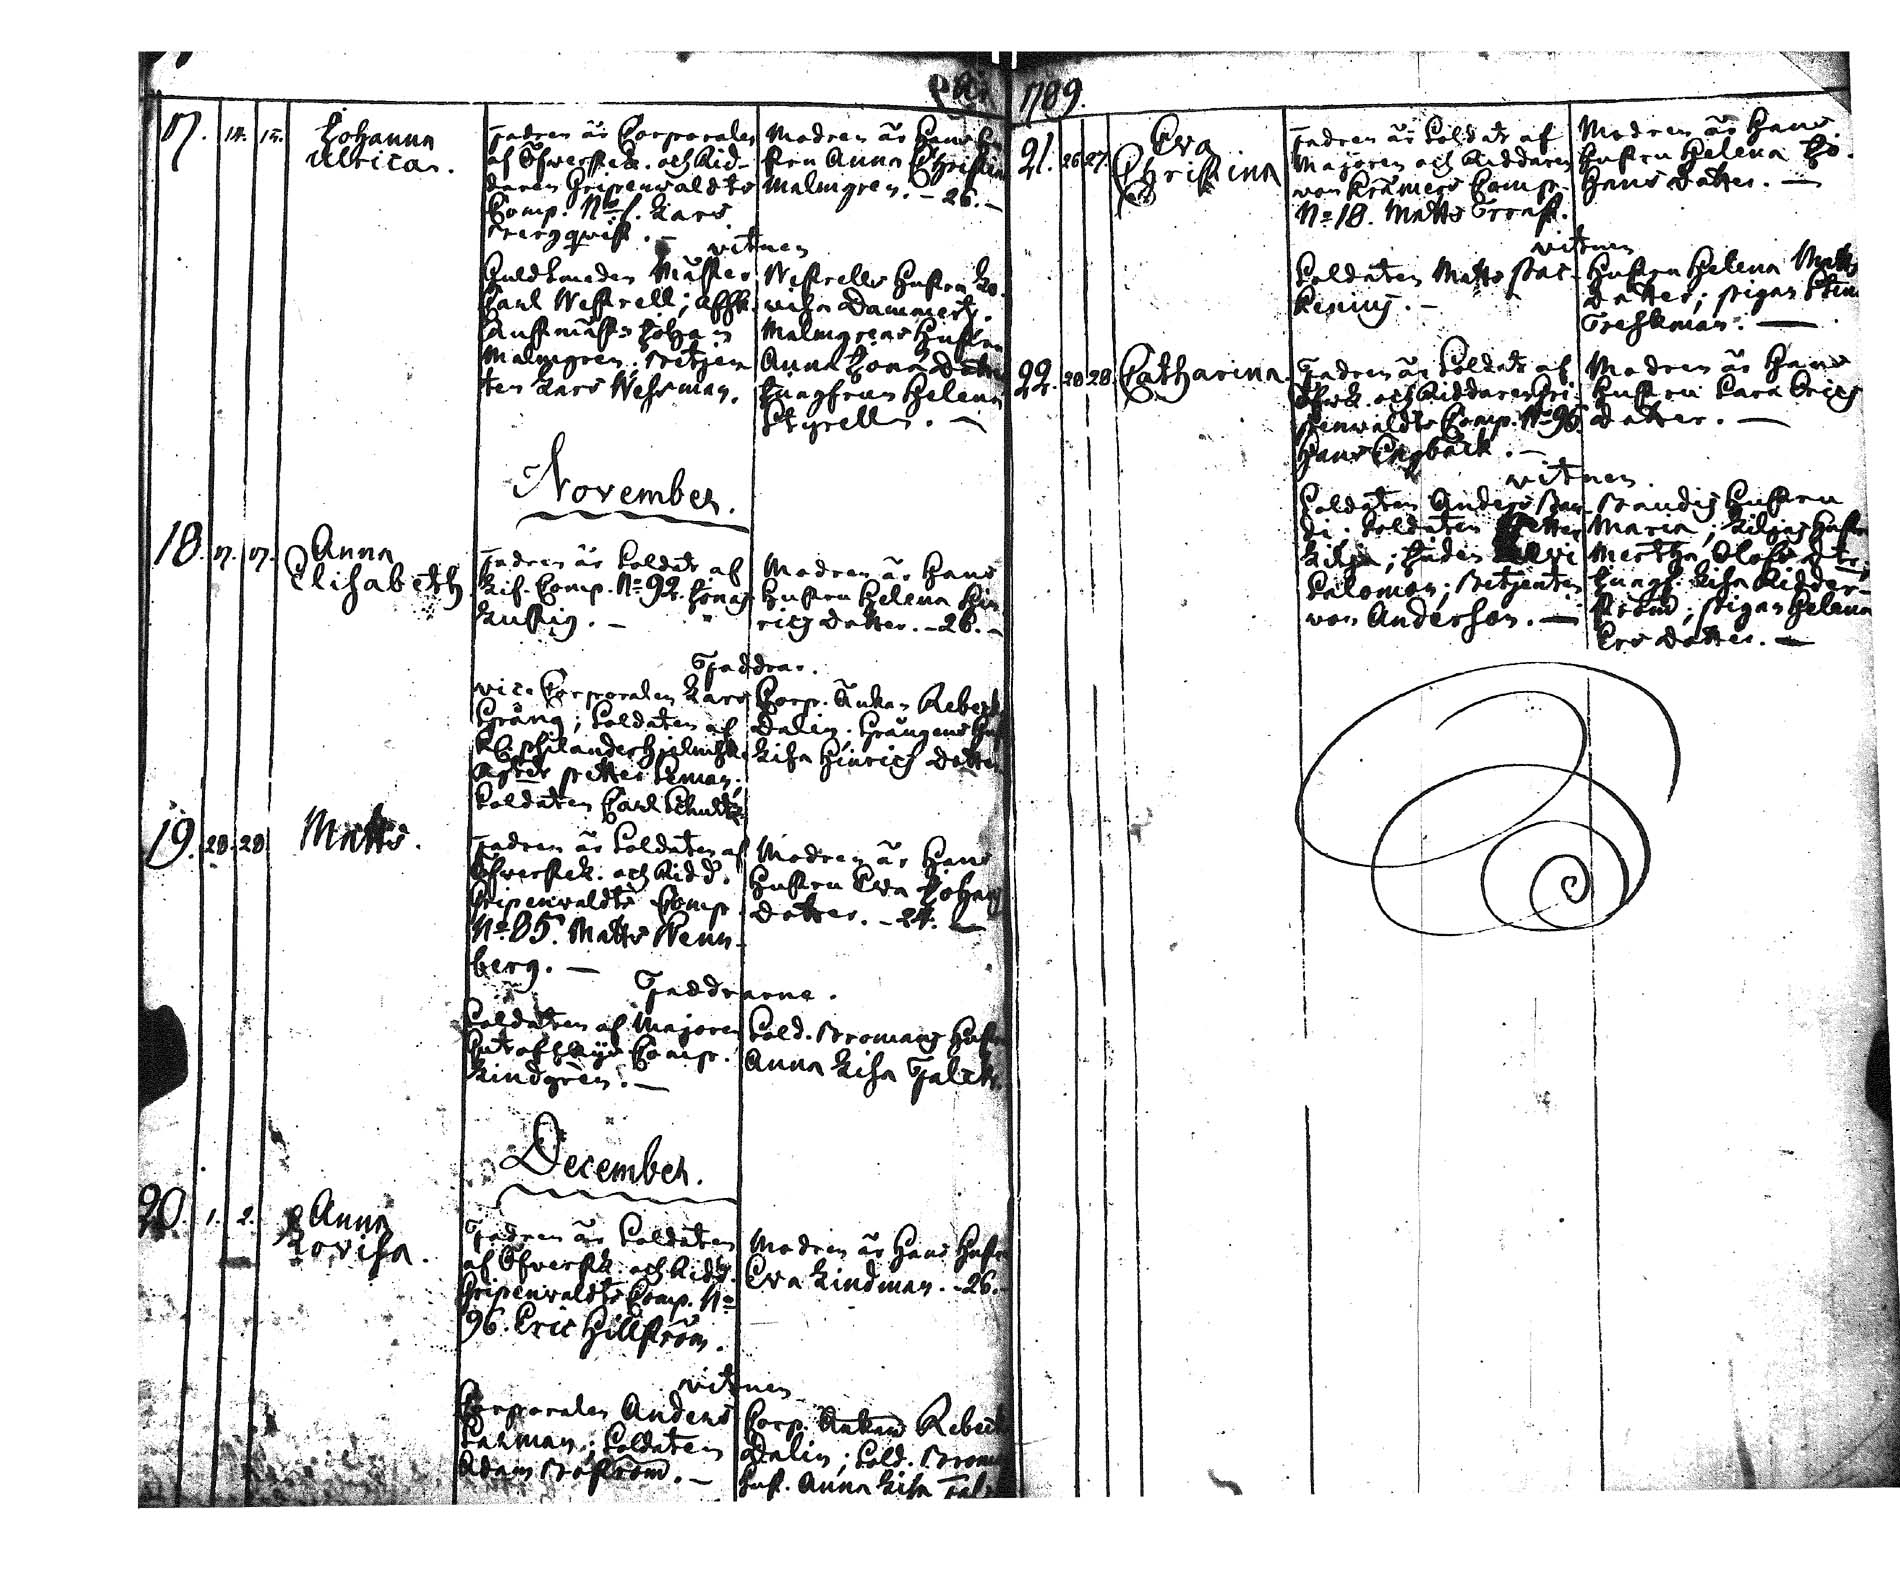 1789.
17. 14. 15. Johanna
Ulrica.
Fadren är Corporalen
af Öfverstl. och Rid-
daren Gripenwaldts
Comp. No 1. Lars
Bergqvist. —
Modren är Hans Hu
stru Anna Christina
Malmgren. - 26. —
vitnen
Guldsmeden Mäster
Carl Westrell;
Johan
Malmgren;
ten Lars Wehrman.
Westrells Hustru Lo-
visa Dammert.
Malmgrens Hustru
Anna Jonæ Datter
Jungfrun Helena
Styrell. —
November.
18. 17. 17. Anna
Elisabeth.
Fadren är Soldat af
Lif. Comp. No 92. Jonas
Lustig. —
Modren är Hans
Hustru Helena Hin-
rics Datter. - 26. —
Faddrar.
vice Corporalen Lars
Gräng; Soldaten af
Petter Seman;
Soldaten Carl
Corp. Änkan Rebeck
Dalin; Grängens Hu
Lisa Hinrics Datter
19. 28. 28. Matts.
Fadren är Soldaten af
Öfverstl. och Ridd.
Gripenwaldts Comp.
No 85. Matts Wenn-
berg. —
Modren är Hans
Hustru Eva Johans
Datter. - 24. —
Faddrarne.
Soldaten af Majoren
Comp.
Lindgren. —
Sold. Bromans Hustr
Anna Lisa Falck.
December.
20. 1. 2. Anna
Lovisa.
Fadren är Soldaten
af Öfverstl. och Ridd.
Gripenwaldts Comp. No
96. Eric Hillström.
Modren är Hans Hustr
Eva Lindman. - 26.
vitnen
Corporalen Anders
Carman; Soldaten
Adam Boström. —
Corp. Änkan Rebeck
Dalin; Sold. Brom
Hust. Anna Lisa Fal
21. 26. 27. Eva
Christina
Fadren är Soldat af
Majoren och Riddaren
von Kræmers Comp.
No 18. Matts Trast.
Modren är Hans
Hustru Helena Jo-
hans Datter. —
vitnen
Soldaten Matts Bac-
kenius. —
Hustru Helena Matts
Datter; Pigan Stin
Freskman. —
22. 28. 28. Catharina.
Fadren är Soldat af
Öfverstl. och Riddaren Gri-
penwaldts Comp. No 96.
Hans Engbäck. —
Modren är Hans
Hustru Cara Erics
Datter. —
vitnen.
Soldaten Anders Ban-
di; Soldaten Petter
Lilja; Juden Levi
Salomon;
von Anderson. —
Bandis Hustru
Maria; Liljas Hustr
Mertha Olofs Dtr;
Jungf. Lisa Ridder-
ström; Pigan Helena
Ers Datter. —